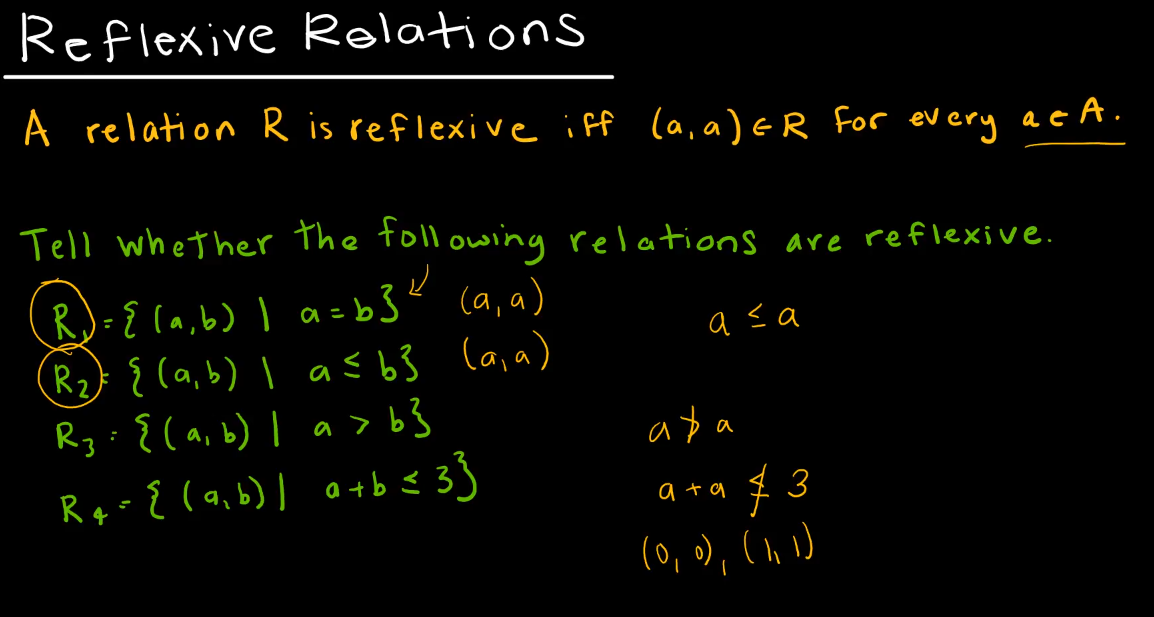 Reflexive Relations
A relation R is reflexive iff (a,a) ∈ R for every a ∈ A.
Tell whether the following relations are reflexive.
R₁ = {(a,b) | a = b} (a,a)
a ≤ a
R₂ = {(a,b) | a ≤ b} (a,a)
R₃ = {(a,b) | a > b} a ≯ a
R₄ = {(a,b) | a+b ≤ 3} a+a ≰ 3
(0,0), (1,1)